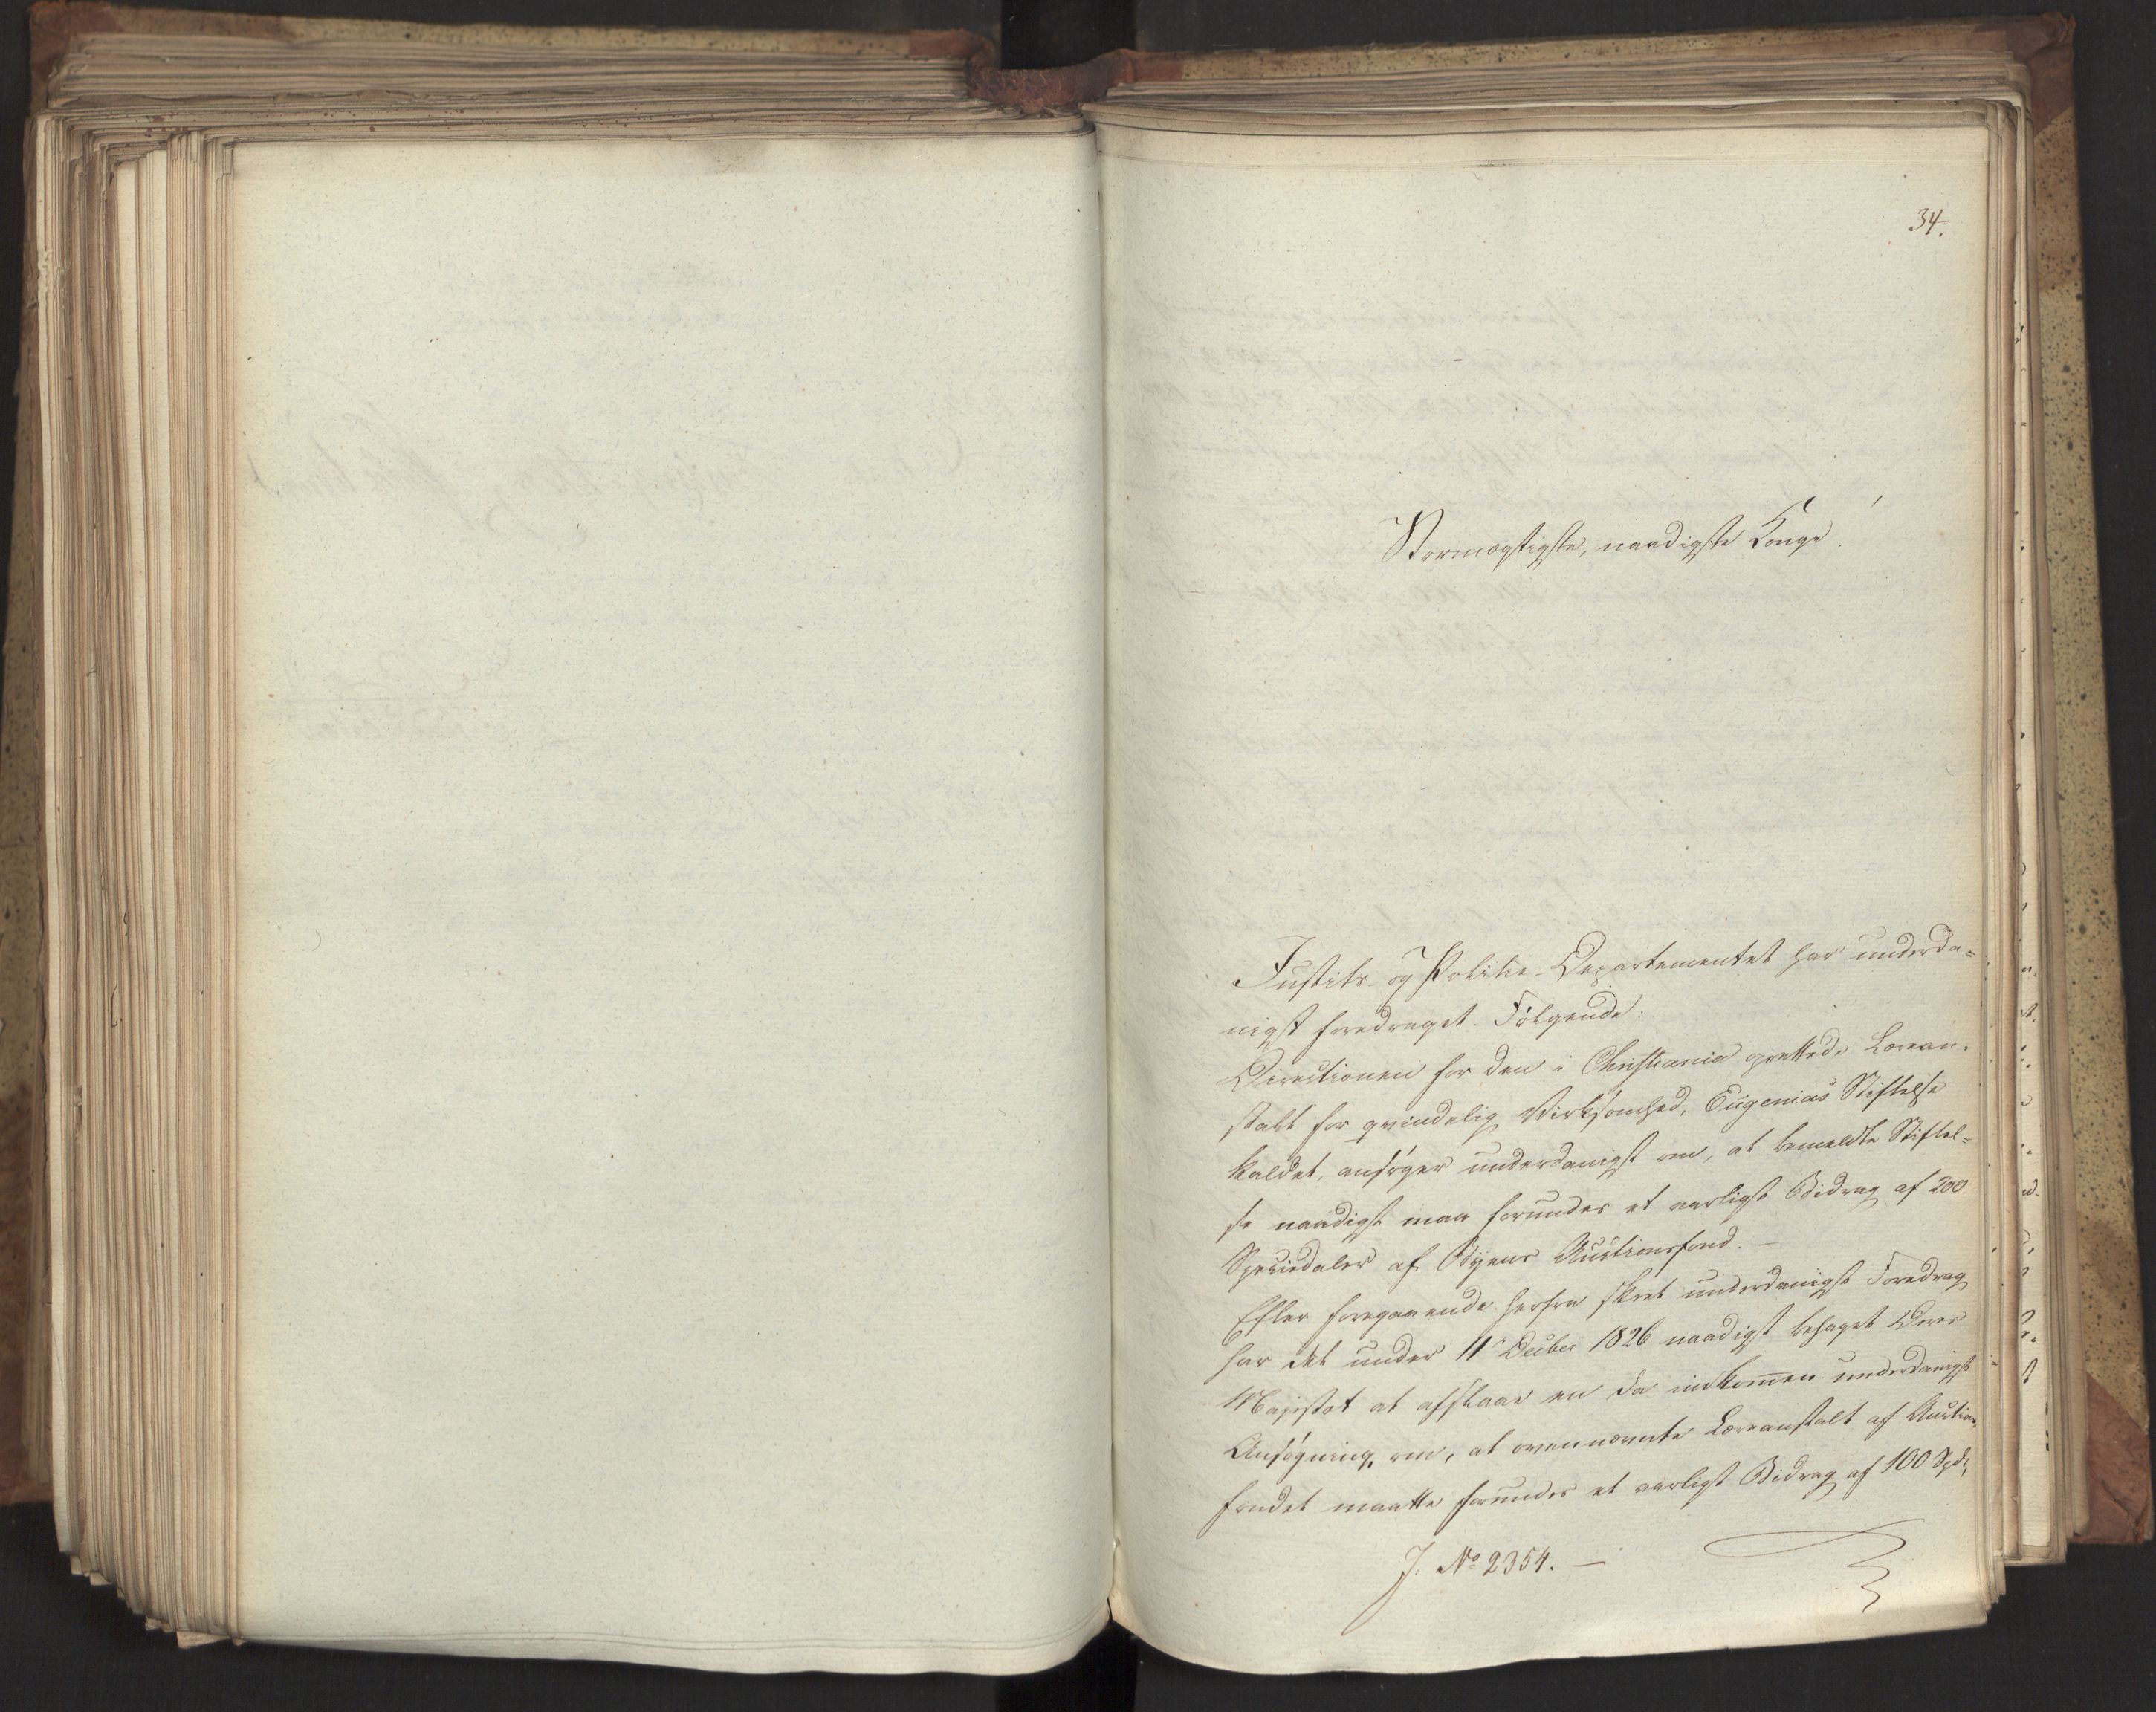 34.
Stormægtigste, naadigste Konge!
Justits- og Politie-Departementet har underda=
nigst foredraget Følgende:
Directionen for den i Christiania oprettede Lærean-
stalt for qvindelig Virksomhed, Eugenias Stiftelse
kaldet, ansøger underdanigst om, at bemeldte Stiftel=
se naadigst maa forundes et aarligt Bidrag af 200
Speciedaler af Byens Auctionsfond. —
Efter foregaaende herfra skeet underdanigst Foredrag
har det under 11te Decbr 1826 naadigst behaget Deres
Majestæt at afslaae en da indkommen underdanigst
Ansøgning om, at ovennævnte Læreanstalt af Auctions-
fondet maatte forundes et aarligt Bidrag af 100 Spd,
J. No 2354. —